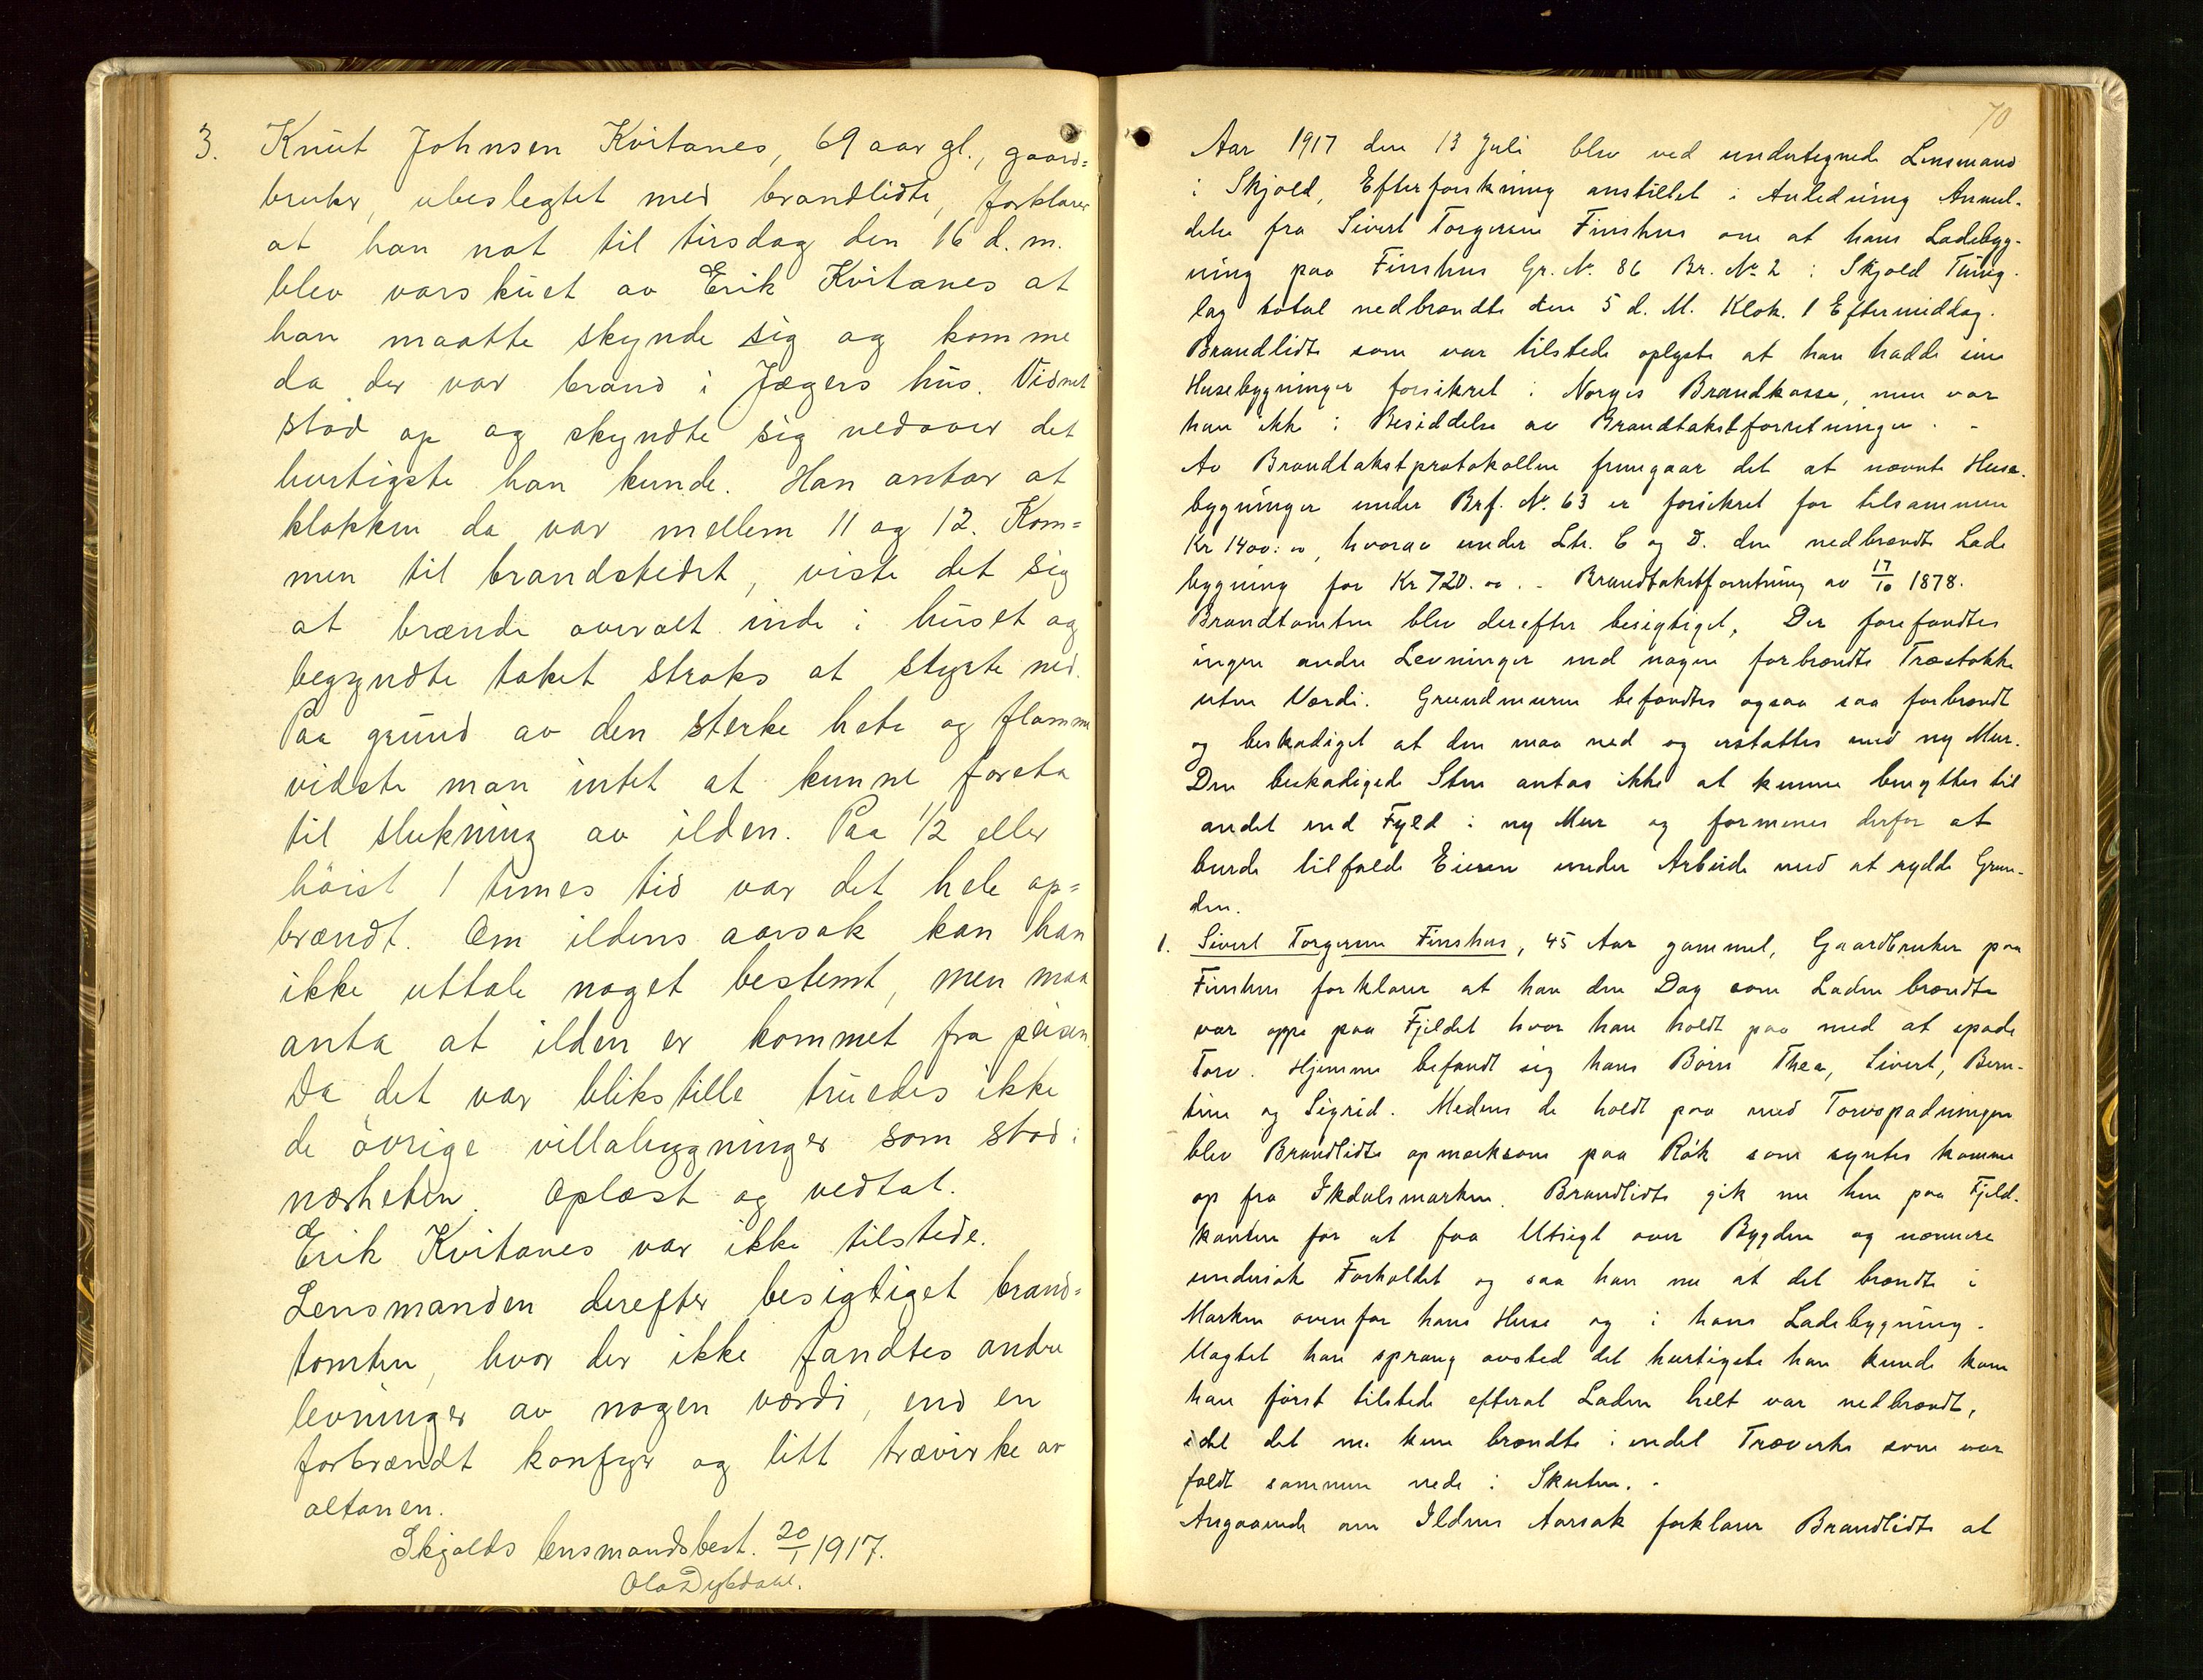 3. Knut Johnsen Kvitanes, 69 aar gl., gaard=
bruker, ubeslegtet med brandlidte, forklarer
at han nat til tirsdag den 16 d. m.
blev varskuet av Erik Kvitanes at
han maatte skynde sig og komme
da der var brand i Jægers hus. Vidnet
stod op og skyndte sig nedover det
hurtigste han kunde. Han antar at
klokken da var mellem 11 og 12. Kom=
men til brandstedet, viste det sig
at brænde overalt inde i huset og
begyndte taket straks at styrte ned.
Paa grund av den sterke hete og flamme
vidste man intet at kunne foreta
til slukning av ilden. Paa 1/2 eller
höist 1 times tid var det hele op=
brændt. Om ildens aarsak kan han
ikke uttale noget bestemt, men maa
anta at ilden er kommet fra peisen.
Da det var blikstille truedes ikke
de övrige villabygninger som stod i
nærheten. Oplæst og vedtat.
Erik Kvitanes var ikke tilstede.
Lensmanden derefter besigtiget brand=
tomten, hvor der ikke fandtes andre
levninger av nogen værdi, end en
forbrændt komfyr og litt trævirke av
altanen.
Skjolds lensmandsbest. 20/1 1917.
Ola Dybdahl.
70
Aar 1917 den 13 Juli blev ved undertegnede Lensmand
i Skjold, Efterforskning anstillet i Anledning Anmel-
delse fra Sivert Torgersen Finshus om at hans Ladebyg-
ning paa Finshus Gr. No. 86 Br. No. 2 i Skjold Thing-
lag total nedbrændte den 5 d. M. Klok. 1 Eftermiddag.
Brandlidte som var tilstede oplyste at han hadde sine
Husebygninger forsikret i Norges Brandkasse, men var
han ikke i Besiddelse av Brandtakstforretningen. -
Av Brandtakstprotokollen fremgaar det at nævnte Huse-
bygninger under Brf. No. 63 er forsikret for tilsammen
Kr 1400:00, hvorav under Ltr. C og D. den nedbrændte Lade
bygning for Kr 720.00. - Brandtakstforretning av 17/10 1878.
Brandtomten blev derefter besigtiget. Der forefandtes
ingen andre Levninger end nogen forbrændte Træstokke
uten Værdi. Grundmuren befandtes ogsaa saa forbrændt
og beskadiget at den maa ned og erstattes med ny Mur.
Den beskadigede Sten antas ikke at kunne benyttes til
andet end Fyld i ny Mur og formenes derfor at
burde tilfalde Eieren under Arbeide med at rydde Grun-
den.
1. Sivert Torgersen Finshus, 45 Aar gammel, Gaardbruker paa
Finshus forklarer at han den Dag som Laden brændte
var oppe paa Fjeldet hvor han holdt paa med at spade
Torv. Hjemme befandt sig hans Börn Thea, Sivert, Bern-
tine og Sigrid. Medens de holdt paa med Torvspadningen
blev Brandlidte opmerksom paa Rök som syntes komme
op fra Ikdalsmarken. Brandlidte gik nu hen paa Fjeld-
kanten for at faa Utsigt over Bygden og nærmere
undersöke Forholdet og saa han nu at det brændte i
Marken ovenfor hans Huse og i hans Ladebygning.
Uagtet han sprang avsted det hurtigste han kunde kom
han först tilstede efterat Laden helt var nedbrændt,
idet det nu kun brændte i endel Træverke som var
faldt sammen nede i Skuten. -
Angaaende om Ildens Aarsak forklarer Brandlidte at